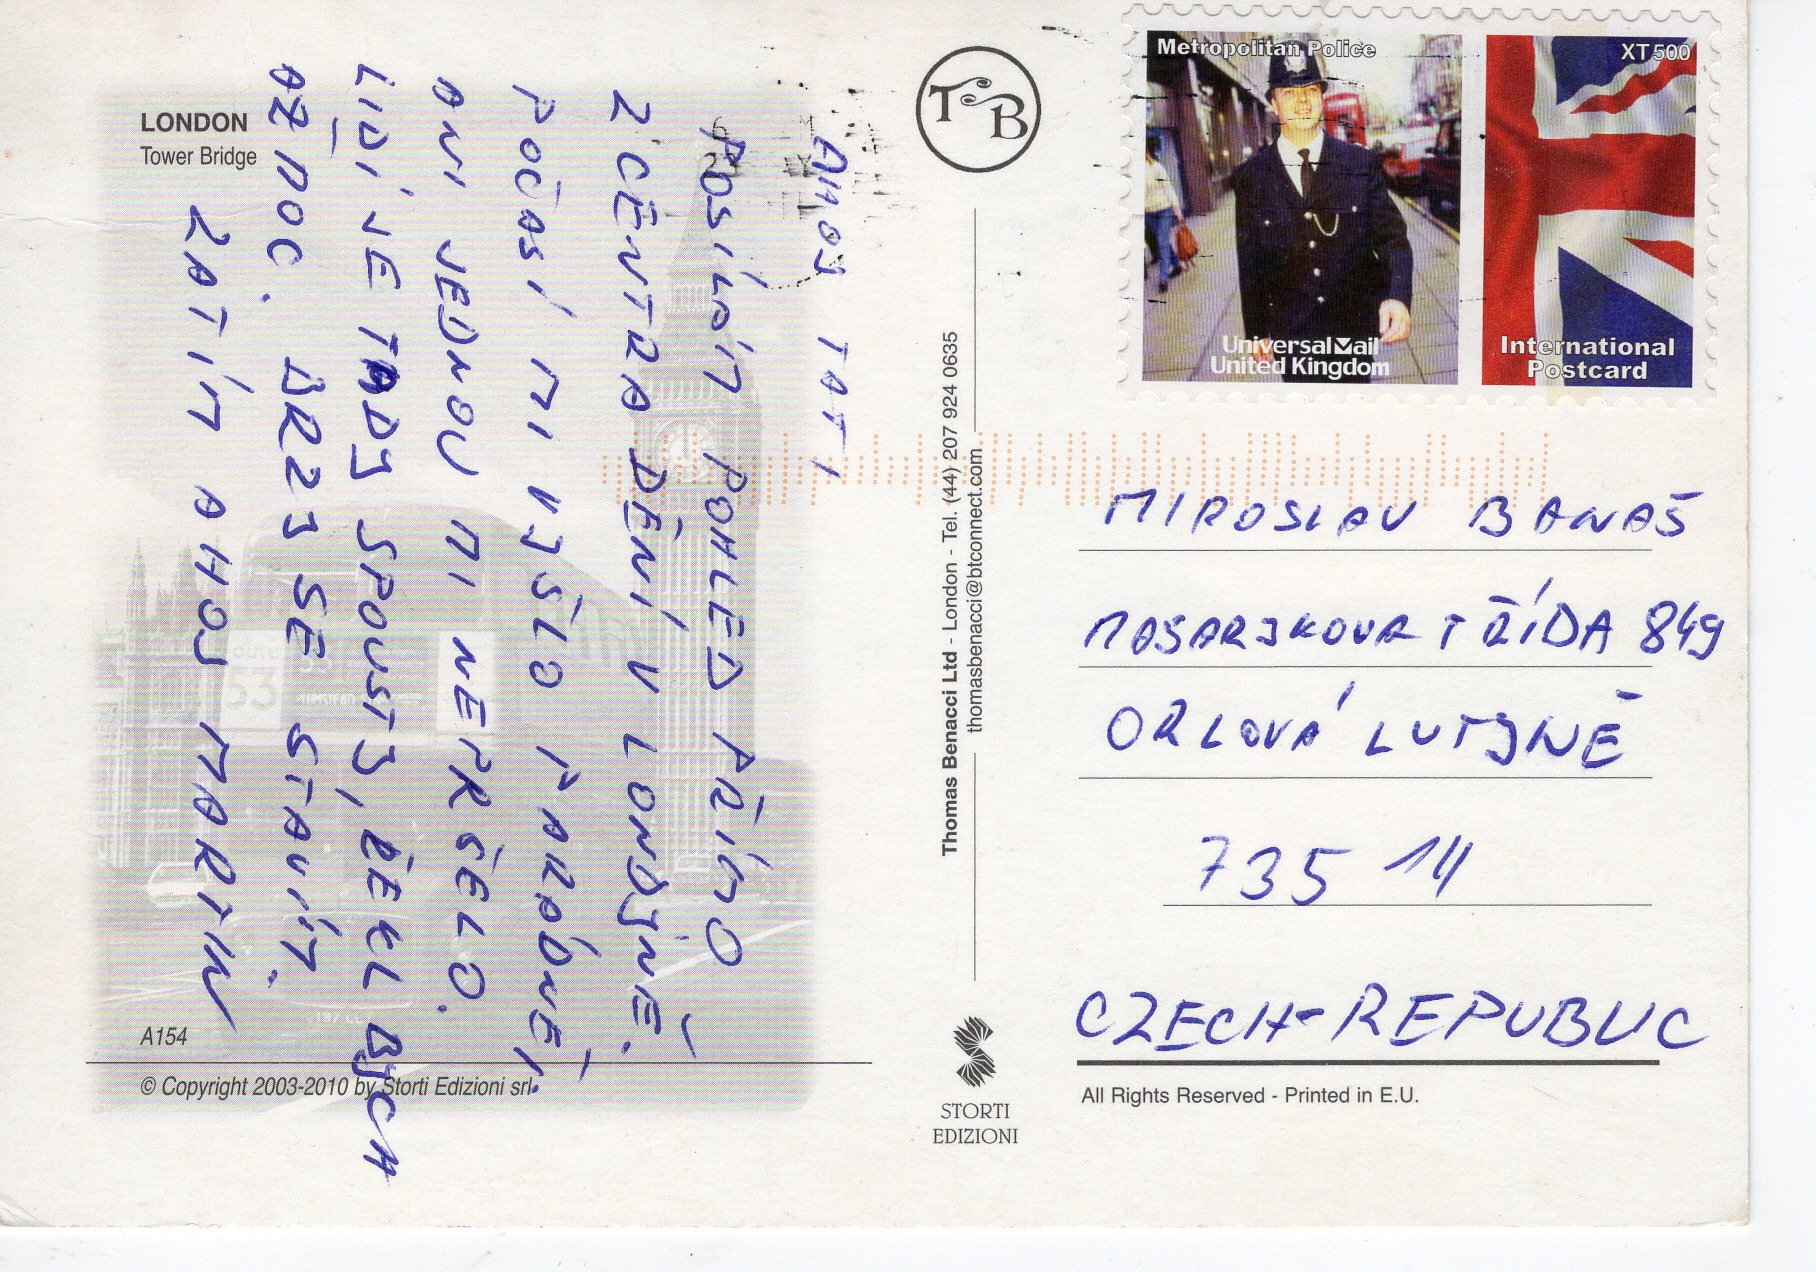 LONDON
Tower Bridge
AHOJ TATI
POSÍLÁM POHLED PŘÍMO
Z CENTRA DĚNÍ V LONDÝNĚ.
POČASÍ MI VYŠLO PARÁDNĚ,
ANI JEDNOU MI NEPRŠELO.
LIDÍ JE TADY SPOUSTY, ŘEKL BYCH
AŽ MOC. BRZY SE STAVÍM.
ZATÍM AHOJ MARTIN
A154
© Copyright 2003-2010 by Storti Edizioni srl.
TB
Thomas Benacci Ltd - London - Tel. (44) 207 924 0635
thomasbenacci@btconnect.com
STORTI
EDIZIONI
Metropolitan Police
UniversalMail
United Kingdom
XT500
International
Postcard
MIROSLAV BANAŠ
MASARYKOVA TŘÍDA 849
ORLOVÁ LUTYNĚ
735 14
CZECH-REPUBLIC
All Rights Reserved - Printed in E.U.